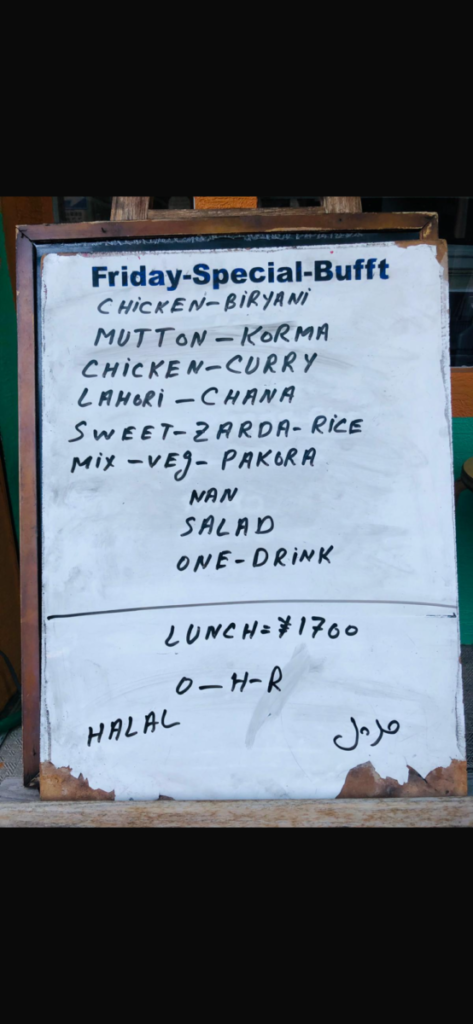 Friday-Special-Bufft
CHICKEN-BIRYANI
MUTTON-KORMA
CHICKEN-CURRY
LAHORI-CHANA
SWEET-ZARDA-RICE
MIX-VEg-PAKORA
NAN
SALAD
ONE-DRINK
LUNCH=¥1700
O-H-R
HALAL حلال